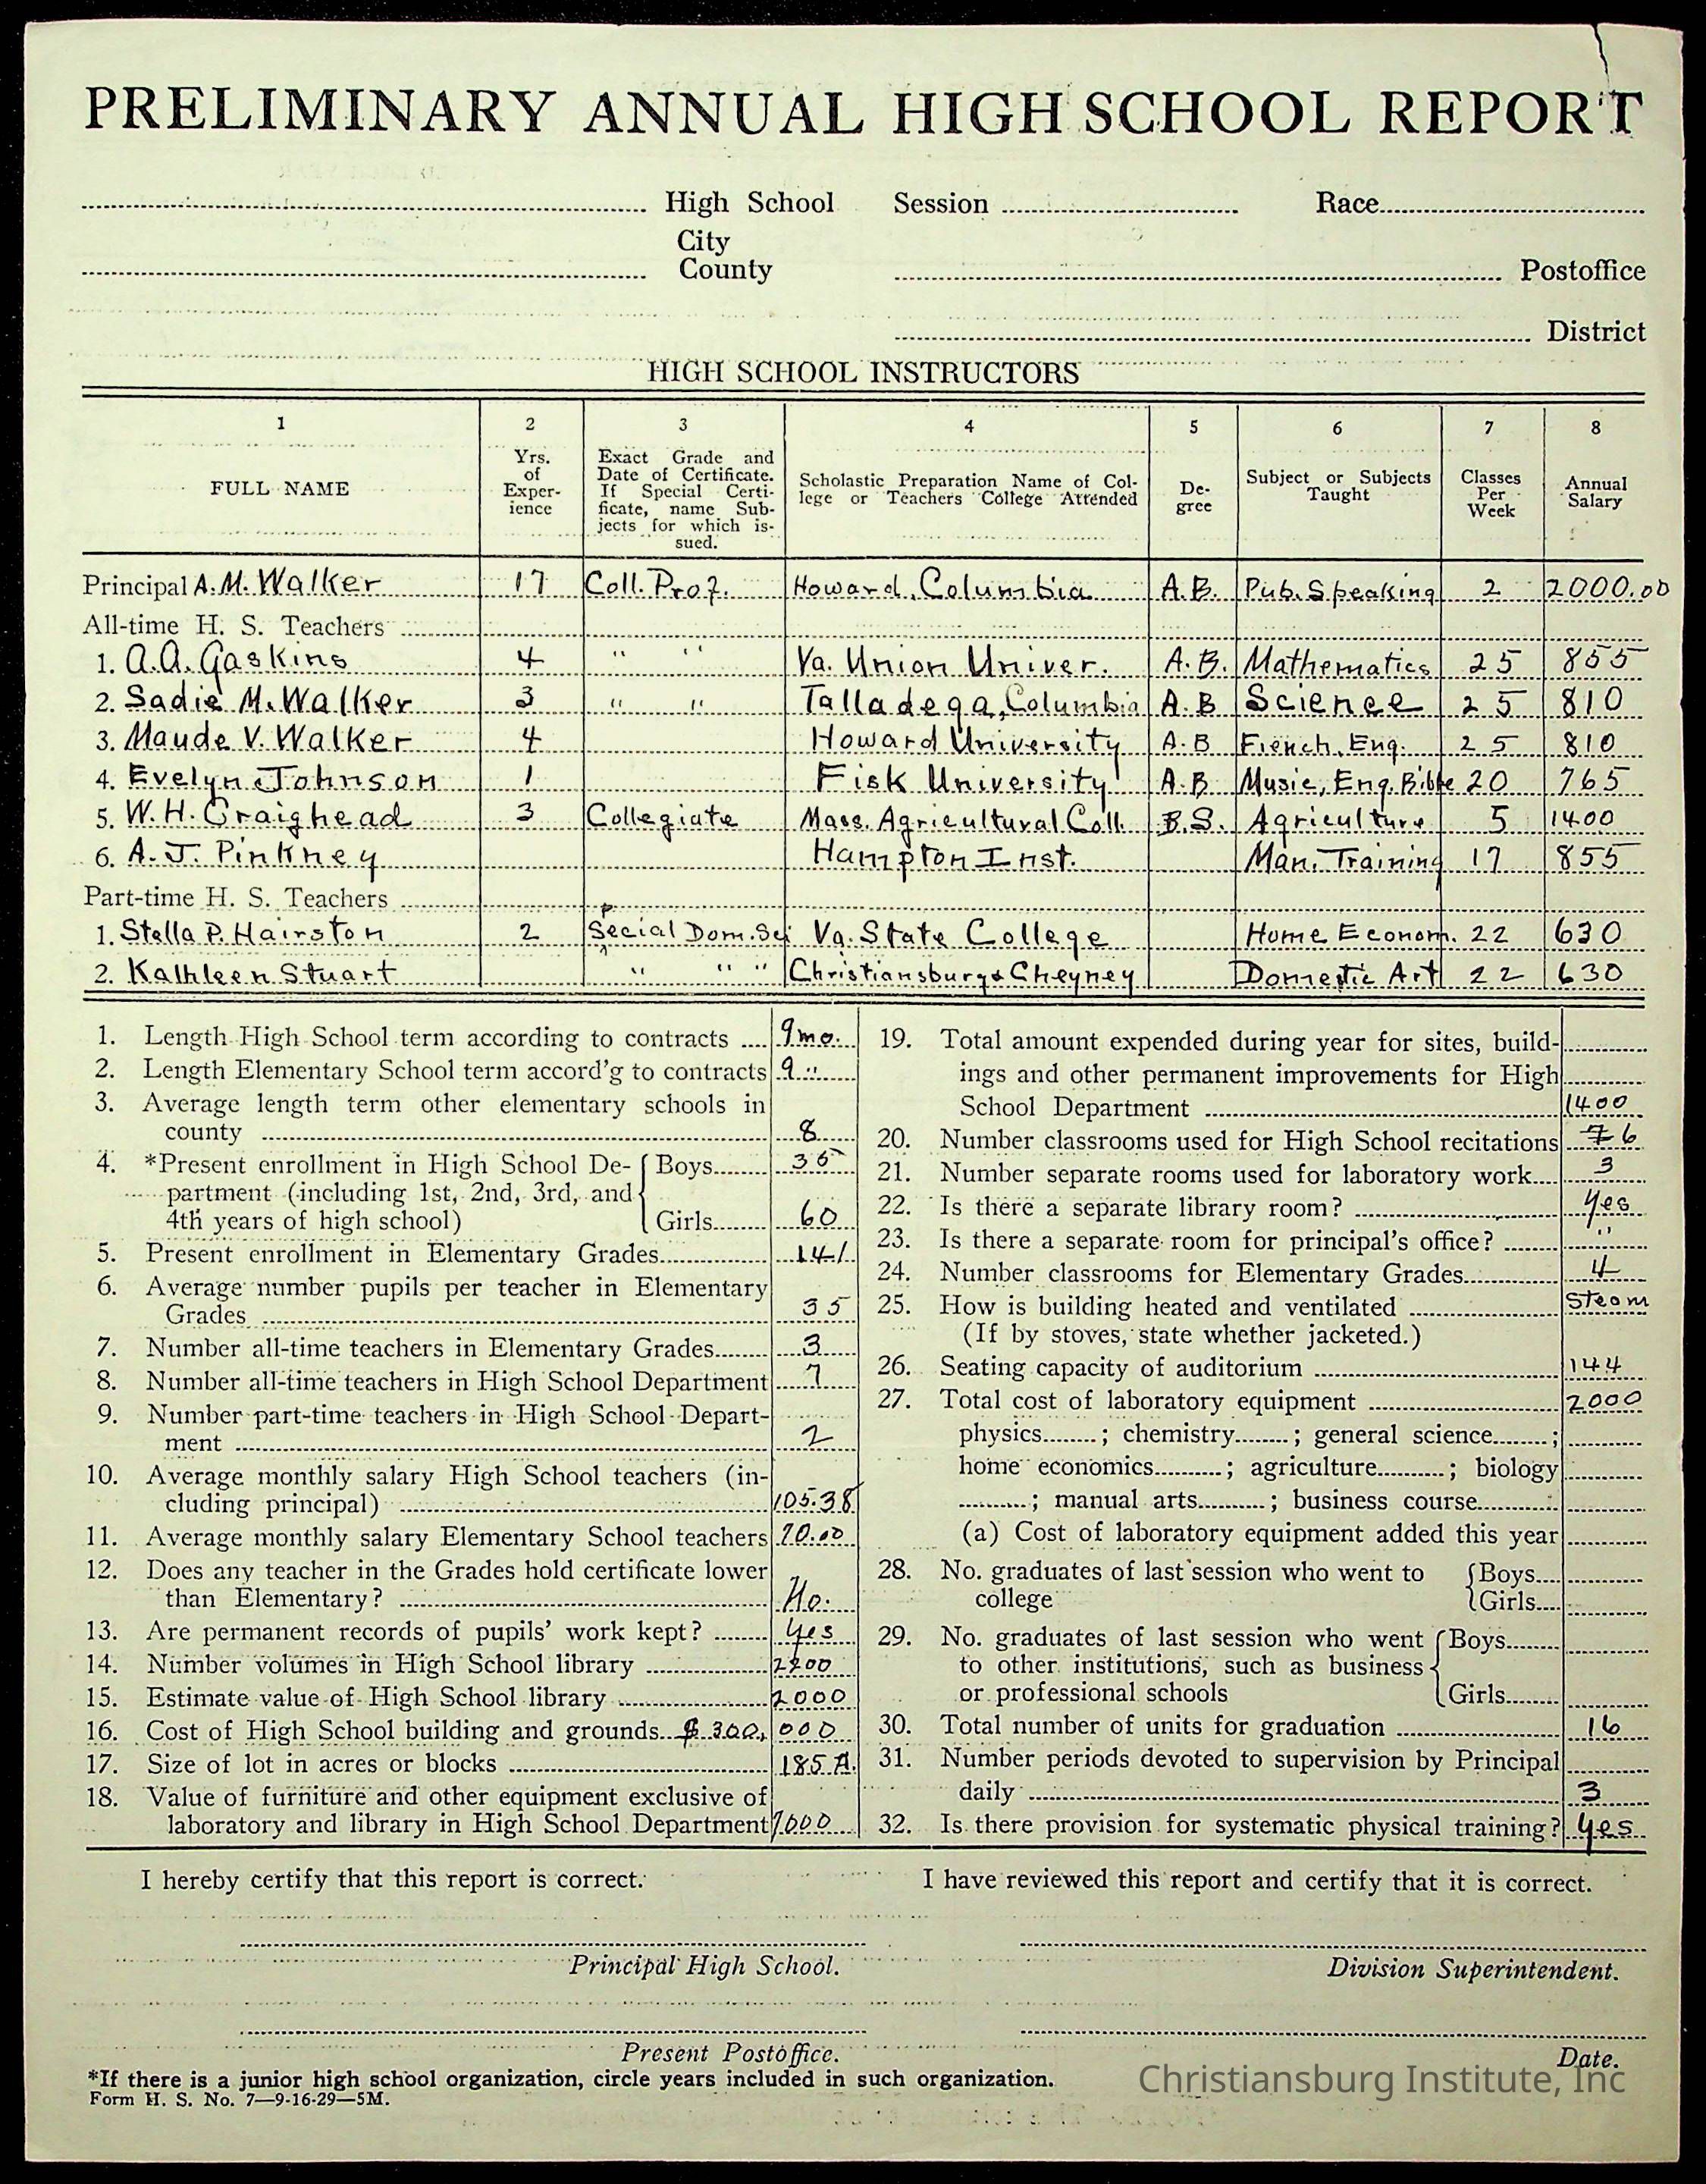 PRELIMINARY ANNUAL HIGH SCHOOL REPORT
High School Session Race
City
County Postoffice
District
HIGH SCHOOL INSTRUCTORS
1 2 3 4 5 6 7 8
FULL NAME
Yrs. of Exper- ience
Exact Grade and Date of Certificate. If Special Certi- ficate, name Sub- jects for which is- sued.
Scholastic Preparation Name of Col- lege or Teachers College Attended
De- gree
Subject or Subjects Taught
Classes Per Week
Annual Salary
Principal A.M. Walker 17 Coll. Prof. Howard, Columbia A.B. Pub. Speaking 2 2000.00
All-time H. S. Teachers
1. A.A. Gaskins 4 " " Va. Union Univer. A.B. Mathematics 25 855
2. Sadie M. Walker 3 " " Talladega, Columbia A.B Science 25 810
3. Maude V. Walker 4 Howard University A.B French, Eng. 25 810
4. Evelyn Johnson 1 Fisk University A.B Music, Eng. Bible 20 765
5. W.H. Craighead 3 Collegiate Mass. Agricultural Coll. B.S. Agriculture 5 1400
6. A.J. Pinkney Hampton Inst. Man. Training 17 855
Part-time H. S. Teachers
1. Stella P. Hairston 2 Special Dom. Sci Va. State College Home Econom. 22 630
2. Kathleen Stuart " " " Christiansburg & Cheyney Domestic Art 22 630
1. Length High School term according to contracts 9 mo.
2. Length Elementary School term accord'g to contracts 9 "
3. Average length term other elementary schools in
county 8
4. *Present enrollment in High School De- Boys 35
partment (including 1st, 2nd, 3rd, and
4th years of high school) Girls 60
5. Present enrollment in Elementary Grades 141
6. Average number pupils per teacher in Elementary
Grades 35
7. Number all-time teachers in Elementary Grades 3
8. Number all-time teachers in High School Department 7
9. Number part-time teachers in High School Depart-
ment 2
10. Average monthly salary High School teachers (in-
cluding principal) 105.38
11. Average monthly salary Elementary School teachers 70.00
12. Does any teacher in the Grades hold certificate lower
than Elementary? No.
13. Are permanent records of pupils' work kept? Yes
14. Number volumes in High School library 2200
15. Estimate value of High School library 2000
16. Cost of High School building and grounds $300,000
17. Size of lot in acres or blocks 185 A.
18. Value of furniture and other equipment exclusive of
laboratory and library in High School Department 7000
19. Total amount expended during year for sites, build-
ings and other permanent improvements for High
School Department 1400
20. Number classrooms used for High School recitations 7 6
21. Number separate rooms used for laboratory work 3
22. Is there a separate library room? Yes
23. Is there a separate room for principal's office? "
24. Number classrooms for Elementary Grades 4
25. How is building heated and ventilated Steam
(If by stoves, state whether jacketed.)
26. Seating capacity of auditorium 144
27. Total cost of laboratory equipment 2000
physics; chemistry; general science;
home economics; agriculture; biology
; manual arts; business course
(a) Cost of laboratory equipment added this year
28. No. graduates of last session who went to Boys
college Girls
29. No. graduates of last session who went Boys
to other institutions, such as business
or professional schools Girls
30. Total number of units for graduation 16
31. Number periods devoted to supervision by Principal
daily 3
32. Is there provision for systematic physical training? Yes
I hereby certify that this report is correct. I have reviewed this report and certify that it is correct.
Principal High School. Division Superintendent.
Present Postoffice. Date.
*If there is a junior high school organization, circle years included in such organization.
Form H. S. No. 7—9-16-29—5M.
Christiansburg Institute, Inc